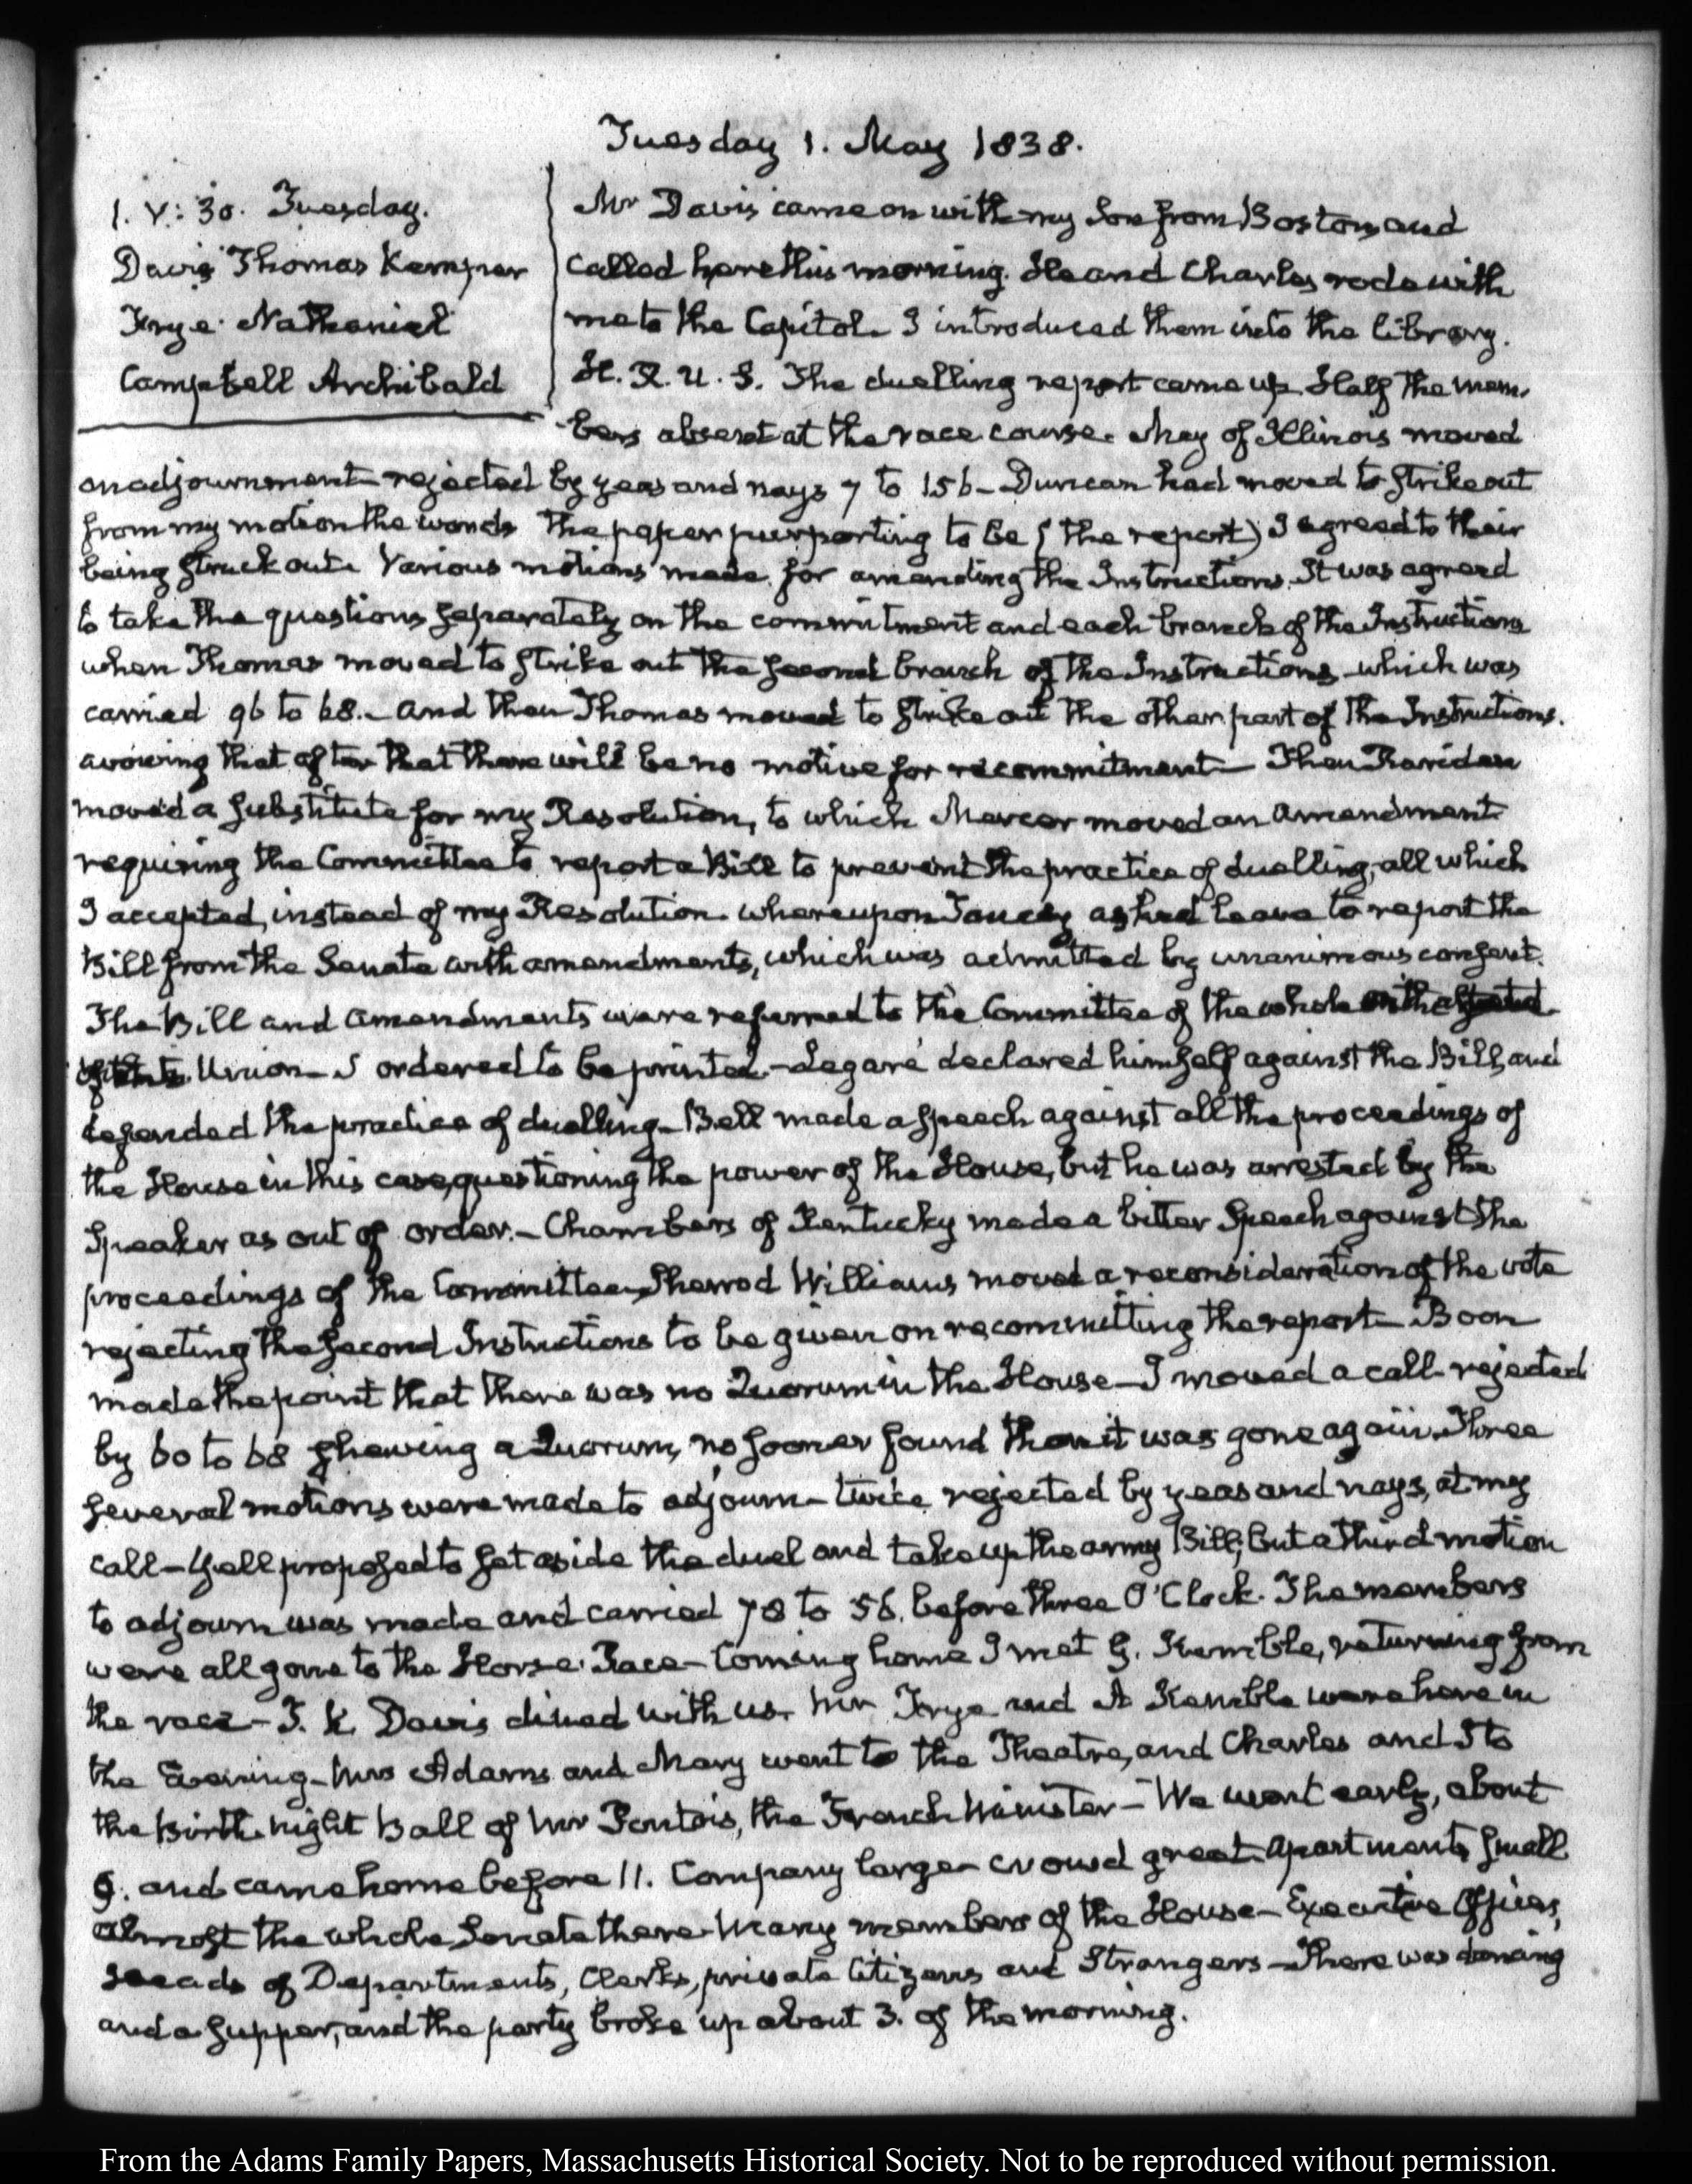 Tuesday 1. May 1838.
1. V: 30. Tuesday.
Davis Thomas Kemper
Frye Nathaniel
Campbell Archibald
Mr Davis came on with my Son from Boston and
called here this morning. He and Charles rode with
me to the Capitol. I introduced them into the library.
H. R. U. S. The duelling report came up. Half the mem-
bers absent at the race course. May of Illinois moved
an adjournment—rejected by yeas and nays 7 to 156—Duncan had moved to strike out
from my motion the words the paper purporting to be (the report) I agreed to their
being struck out. Various motions made for amending the Instructions. It was agreed
to take the questions separately on the commitment and each branch of the Instructions
when Thomas moved to strike out the second branch of the Instructions which was
carried 96 to 68.—And then Thomas moved to strike out the other part of the Instructions.
avowing that after that there will be no motive for recommitment—Then
moved a substitute for my Resolution, to which Mercer moved an amendment
requiring the Committee to report a Bill to prevent the practice of duelling, all which
I accepted, instead of my Resolution. Whereupon Toucey asked leave to report the
Bill from the Senate with amendments, which was admitted by unanimous consent.
The Bill and amendments were referred to the Committee of the whole on the
Union—I ordered to be printed.—Legaré declared himself against the Bill, and
defended the practice of duelling—Bell made a speech against all the proceedings of
the House in this case, questioning the power of the House, but he was arrested by the
Speaker as out of order.—Chambers of Kentucky made a bitter Speech against the
proceedings of the Committee. Sherrod Williams moved a reconsideration of the vote
rejecting the second Instructions to be given on recommitting the report—Boon
made the point that there was no Quorum in the House—I moved a call—rejected
by 60 to 68 shewing a Quorum, no sooner found than it was gone again. Three
several motions were made to adjourn—twice rejected by yeas and nays, at my
call—Yell proposed to set aside the duel and take up the army Bill; but a third motion
to adjourn was made and carried 78 to 56. before three O'Clock. The members
were all gone to the Horse Race—Coming home I met G. Kemble, returning from
the race—T. K. Davis dined with us. Mr Frye and A Kemble were here in
the Evening—Mrs Adams and Mary went to the Theatre, and Charles and I to
the Birth-night Ball of Mr Pontois, the French Minister—We went early, about
9. and came home before 11. Company large—crowd great—Apartments small
almost the whole Senate there—Many members of the House—Executive Officers,
Heads of Departments, Clerks, private Citizens and Strangers—There was dancing
and a supper, and the party broke up about 3. of the morning.
From the Adams Family Papers, Massachusetts Historical Society. Not to be reproduced without permission.